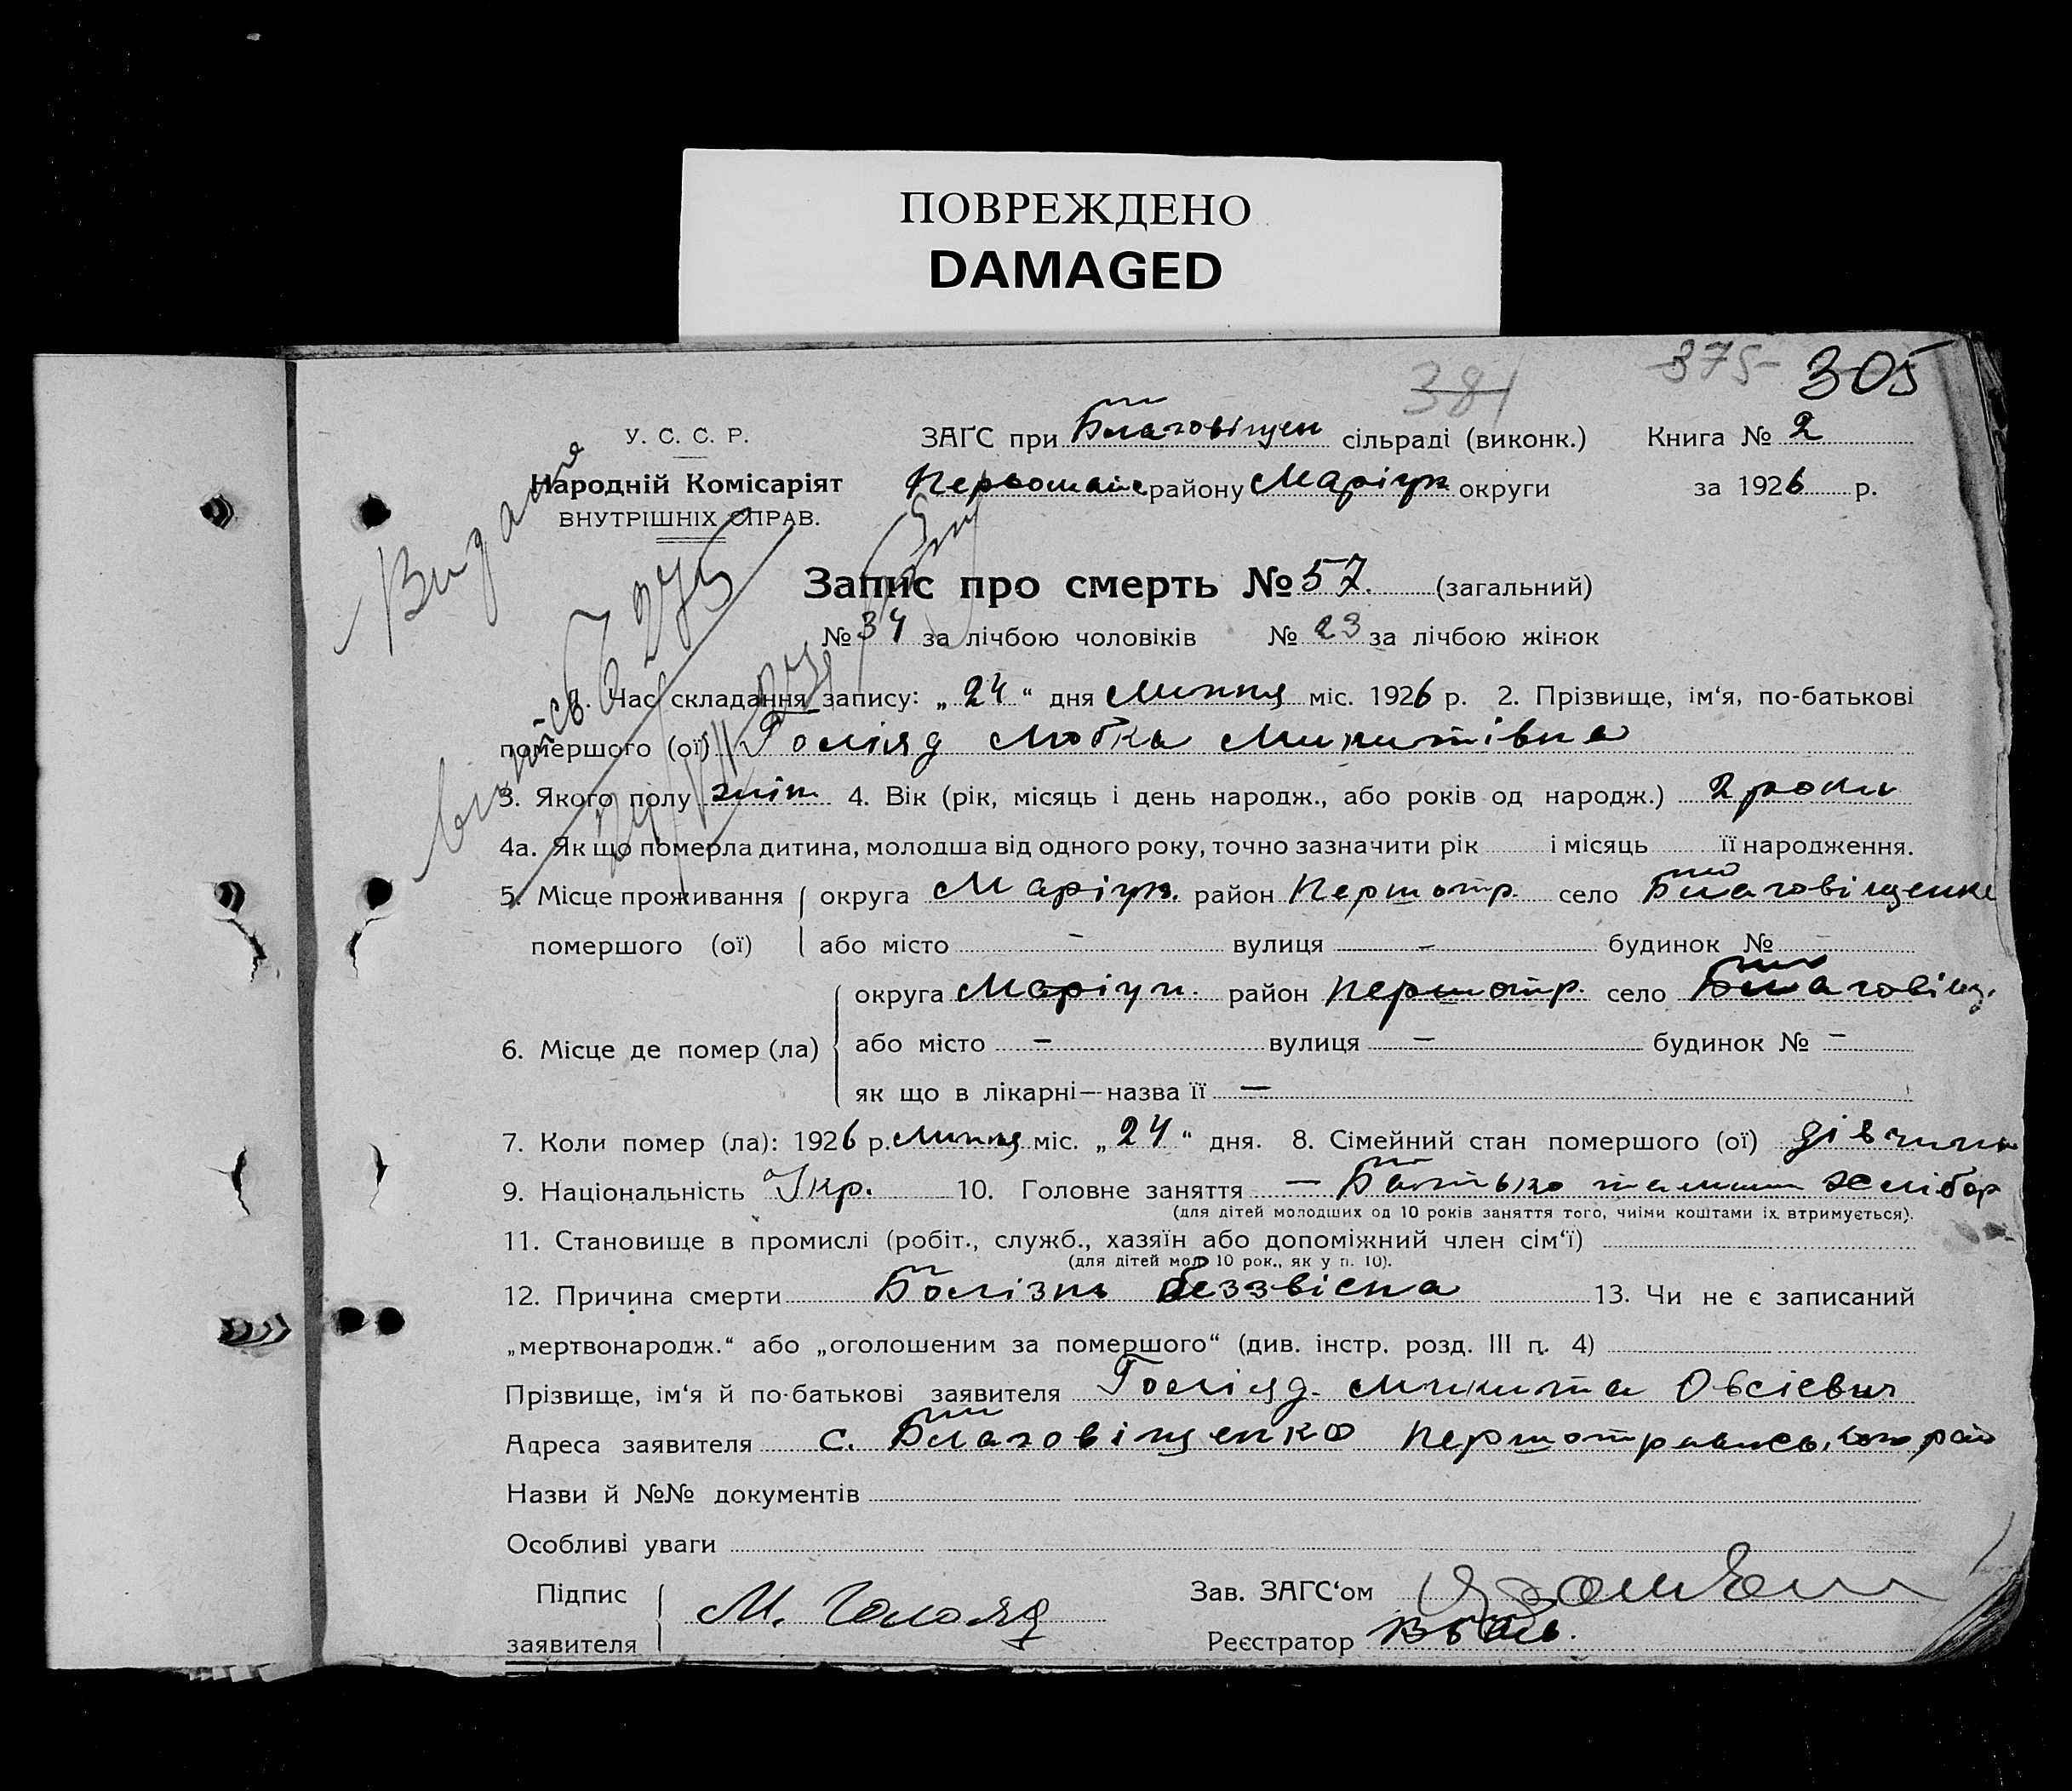 ПОВРЕЖДЕНО
DAMAGED
381 375 305
У. С. С. Р.
Народній Комісаріят
ВНУТРІШНІХ СПРАВ.
ЗАГС при Благовіщен сільраді (виконк.) Книга № 2
Первомайс району Маріуп округи за 1926 р.
Видано
Запис про смерть № 57. (загальний)
№ 34 за лічбою чоловіків № 23 за лічбою жінок
1. Час складання запису: „24“ дня Липня міс. 1926 р. 2. Прізвище, ім‘я, по-батькові
помершого (ої) Голіяд Любка Микитівна
3. Якого полу жін. 4. Вік (рік, місяць і день народж., або років од народж.) 2 роки
4а. Як що померла дитина, молодша від одного року, точно зазначити рік і місяць її народження.
5. Місце проживання округа Маріуп. район Першотр. село Благовіщенка
помершого (ої) або місто – вулиця – будинок № –
6. Місце де помер (ла)
округа Маріуп. район Першотр. село Благовіщ.
або місто – вулиця – будинок № –
як що в лікарні—назва її —
7. Коли помер (ла): 1926 р. Липня міс. „24“ дня. 8. Сімейний стан помершого (ої) дівчина
9. Національність Укр. 10. Головне заняття — Батько хлібор
(для дітей молодших од 10 років заняття того, чиїми коштами їх втримується).
11. Становище в промислі (робіт., служб., хазяїн або допоміжний член сім‘ї)
(для дітей мол. 10 рок., як у п. 10).
12. Причина смерти Болізнь беззвісна 13. Чи не є записаний
„мертвонародж.“ або „оголошеним за помершого“ (див. інстр. розд. III п. 4)
Прізвище, ім‘я й по-батькові заявителя Голіяд Микита Овсієвич
Адреса заявителя с. Благовіщенка Першотравнев. рай
Назви й №№ документів
Особливі уваги
Підпис
заявителя М. Голояд
Зав. ЗАГС‘ом
Реєстратор